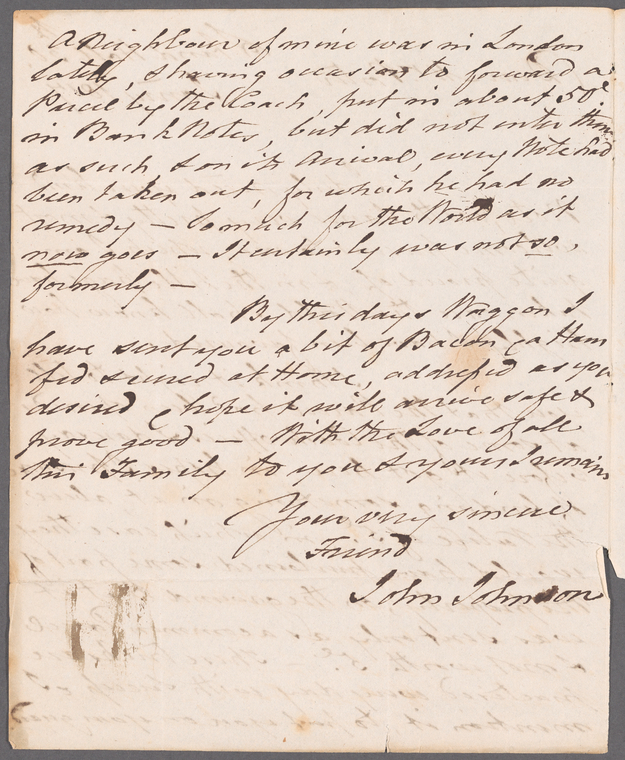 A Neighbour of mine was in London
lately, & having occasion to forward a
Parcel by the Coach, put in about 50£
in Bank Notes, but did not enter them
as such, & on its Arrival, every Note had
been taken out, for which he had no
remedy — So much for the World as it
now goes — It certainly was not so,
formerly —
By this days Waggon I
have sent you a bit of Bacon & a Ham
fed & cured at Home, addressed as you
desired & hope it will arrive safe &
prove good — With the Love of all
this Family to you & yours I remain
Your very sincere
Friend
John Johnson